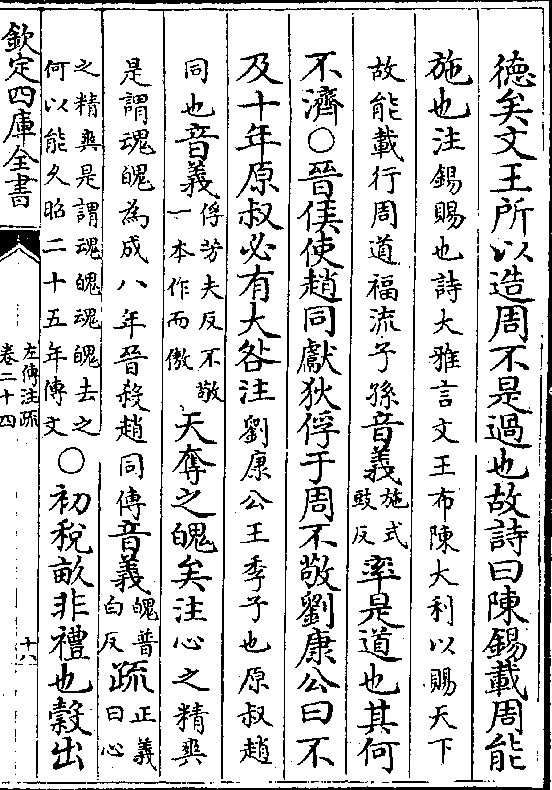 德矣文王所以造周不是過也故詩曰陳錫載周能
施也注錫賜也詩大雅言文王布陳大利以賜天下
故能載行周道福流子孫音義施式豉反率是道也其何
不濟○晉侯使趙同獻狄俘于周不敬劉康公曰不
及十年原叔必有大咎注劉康公王季子也原叔趙
同也音義俘芳夫反不敬一本作而傲天奪之魄矣注心之精爽
是謂魂魄為成八年晉殺趙同傳音義魄普白反疏正義曰心
之精爽是謂魂魄魂魄去之何以能久昭二十五年傳文○初稅畝非禮也穀出
欽定四庫全書
左傳注疏
卷二十四
十八